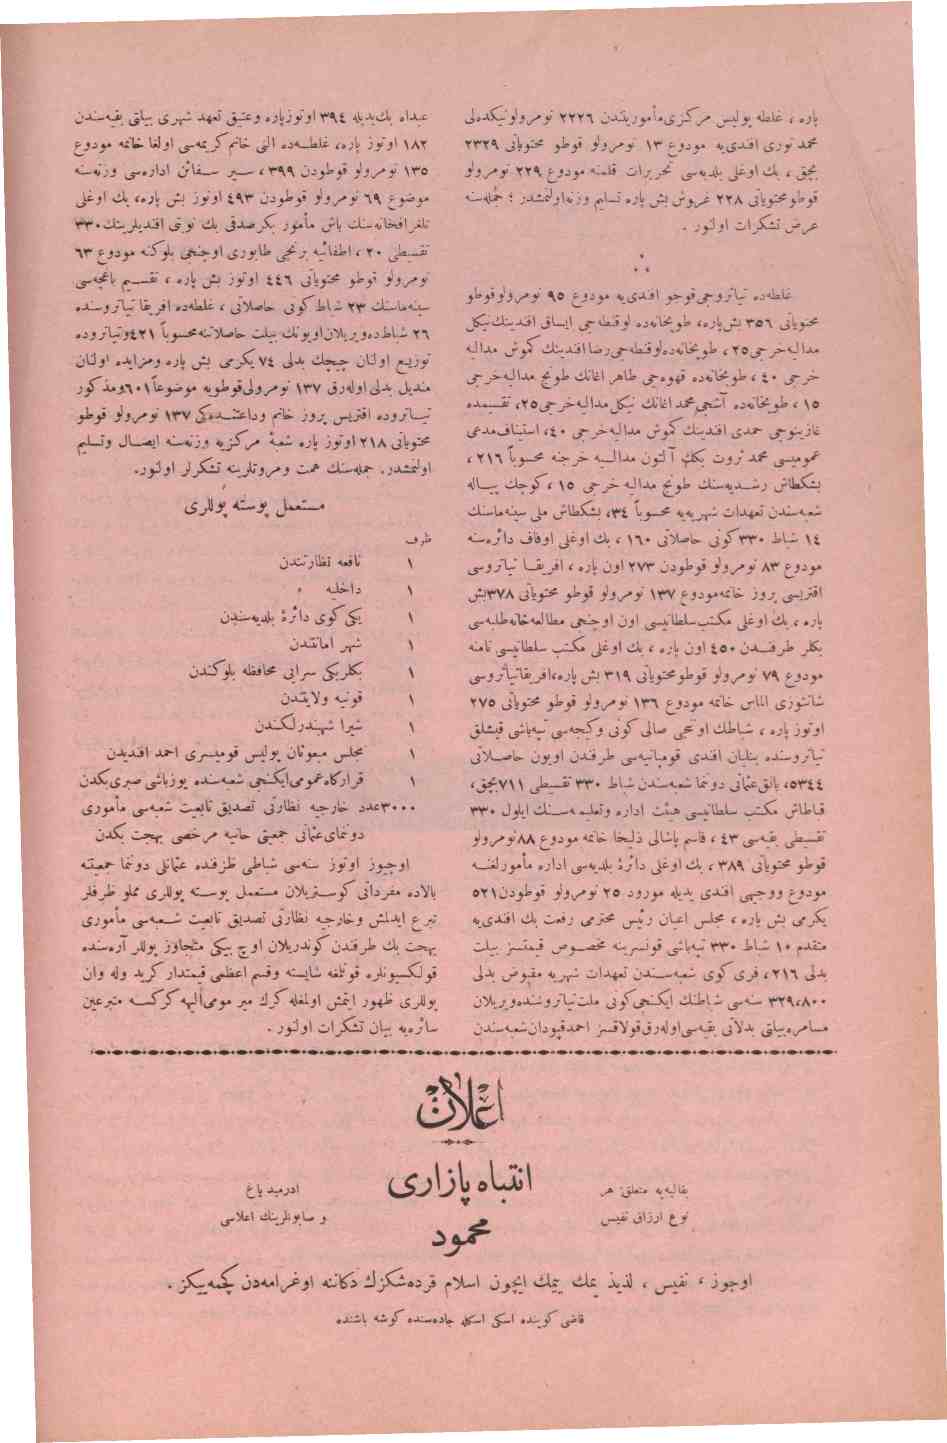 پاره ، غلطه پولیس مرکزی‌مأموریتندن ٢٢٢٦ نومرولونیکده‌لی
محمد نوری افندی‌یه مودوع ١٣ نومرولو قوطو محتویاتی ٢٣٢٩
بچق ، بك اوغلی بلدیه‌سی تحریرات قلمنه مودوع ٢٢٩ نومرولو
قوطو محتویاتی ٢٢٨ غروش بش پاره تسلیم وزنه‌اولنمشدر ؛ جمله‌سنه
عرض تشکرات اولنور .
غلطه‌ده تیاتروجی‌قوجو افندی‌یه مودوع ٩٥ نومرولوقوطو
محتویاتی ٣٥٦ بش‌پاره، طوبخانه‌ده لوقنطه‌جی ایساق افندینك‌نیکل
مدالیه‌خرجی‌٢٥ ، طوبخانه‌ده‌لوقنطه‌جی‌رضاافندینك کموش مدالیه
خرجی ٤٠ ، طوبخانه‌ده قهوه‌جی طاهر اغانك طونج مدالیه‌خرجی
١٥ ، طوبخانه‌ده آشجی‌محمد اغانك نیکل‌مدالیه‌خرجی‌٢٥، تقسیمده
غازینوجی حمدی افندینك کموش مدالیه‌خرجی ٤٠، استیناف‌مدعی
عمومیسی محمد ثروت بكك آلتون مدالیه خرجنه محسوباً ٢١٦ ،
بشکطاش رشدیه‌سنك طونج مدالیه خرجی ١٥ ، کوچك پیاله
شعبه‌سندن تعهدات شهریه‌یه محسوباً ٣٤، بشکطاش ملی سینه‌ماسنك
١٤ شباط ٣٣٠ کونی حاصلاتی ١٦٠ ، بك اوغلی اوقاف دائره‌سنه
مودوع ٨٣ نومرولو قوطودن ٢٧٣ اون پاره ، افریقا تیاتروسی
اقتریسی پروز خانمه‌مودوع ١٣٧ نومرولو قوطو محتویاتی ٣٧٨بش
پاره ، بك اوغلی مکتب‌سلطانیسی اون اوچنجی مطالعه‌خانه‌طلبه‌سی
بکلر طرفندن ٤٥٠ اون پاره ، بك اوغلی مکتب سلطانیسی نامنه
مودوع ٧٩ نومرولو قوطومحتویاتی ٣١٩ بش پاره،افریقاتیاتروسی
شانتوزی الماس خانمه مودوع ١٣٦ نومرولو قوطو محتویاتی ٢٧٥
اوتوز پاره ، شباطك اونجی صالی کونی وکیجه‌سی تپه‌باشی قیشلق
تیاتروسنده بنلیان افندی قومپانیه‌سی طرفندن اویون حاصلاتی
٥٣٤٤، بالق‌عثمانی دونما شعبه‌سندن شباط ٣٣٠ تقسیطی ٧١١بچق،
قباطاش مکتب سلطانیسی هیئت اداره وتعلیمیه‌سنك ایلول ٣٣٠
تقسیطی بقیه‌سی ٤٣ ، قاسم پاشالی ذلیخا خانمه مودوع ٨٨نومرولو
قوطو محتویاتی ٣٨٩ ، بك اوغلی دائرۀ بلدیه‌سی اداره مأمورلغنه
مودوع ووجهی افندی یدیله مورود ٢٥ نومرولو قوطودن٥٢١
یکرمی بش پاره ، مجلس اعیان رئیس محترمی رفعت بك افندی‌یه
متقدم ١٠ شباط ٣٣٠ تپه‌باشی قونسرینه مخصوص قیمتسز بیلت
بدلی ٢١٦، فری کوی شعبه‌سندن تعهدات شهریه مقبوض بدلی
٣٢٩،٨٠٠ سنه‌سی شباطنك ایکنجی‌کونی ملت‌تیاتروسنده‌ویریلان
مسامره‌بیلتی بدلاتی بقیه‌سی‌اوله‌رق‌قولاقسز احمدقپودان‌شعبه‌سندن
عبداه بك‌یدیله ٣٩٤ اوتوزپاره وعتیق تعهد شهری بیلتی بقیه‌سندن
١٨٢ اوتوز پاره، غلطه‌ده الی خانم کریمه‌سی اولغا خانمه مودوع
١٣٥ نومرولو قوطودن ٣٩٩ ، سیر سفائن اداره‌سی وزنه‌سنه
موضوع ٦٩ نومرولو قوطودن ٤٩٣ اوتوز بش پاره، بك اوغلی
تلغرافخانه‌سنك باش مأمور بکرصدقی بك نوبتی افندیلرینك‌٣٣٠
تقسیطی ٢٠ ، اطفائیه برنجی طابوری اوچنجی بلوکنه مودوع ٦٣
نومرولو قوطو محتویاتی ٤٤٦ اوتوز بش پاره ، تقسیم باغچه‌سی
سینه‌ماسنك ٢٣ شباط کونی حاصلاتی ، غلطه‌ده افریقا تیاتروسنده
٢٦ شباطده‌ویریلان‌اویونك بیلت حاصلاتنه‌محسوباً ٤٢١وتیاتروده
توزیع اولنان چیچك بدلی ٧٤ یکرمی بش پاره ومزایده اولنان
مندیل بدلی اوله‌رق ١٣٧ نومرولی‌قوطویه موضوعاً٦٠١ومذکور
تیاتروده اقتریس پروز خانم وداعنده‌کی ١٣٧ نومرولو قوطو
محتویاتی ٢١٨ اوتوز پاره شعبۀ مرکزیه وزنه‌سنه ایصال وتسلیم
اولنمشدر. جمله‌سنك همت ومروتلرینه تشکرلر اولنور.
مستعمل پوسته پوللری
ظرف
١ نافعه نظارتندن
١ داخلیه »
١ یکی کوی دائرۀ بلدیه‌سندن
١ شهر امانتندن
١ بکلربکی سرایی محافظه بلوکندن
١ قونیه ولایتندن
١ شیرا شهبندرلکندن
١ مجلس مبعوثان پولیس قومیسری احمد افندیدن
١ قرارکاه عمومی‌ایکنجی شعبه‌سنده یوزباشی صبری‌بکدن
٣٠٠٠عدد خارجیه نظارتی تصدیق تابعیت شعبه‌سی مأموری
دونمای‌عثمانی جمعیتی حانیه مرخصی بهجت بکدن
اوچیوز اوتوز سنه‌سی شباطی ظرفنده عثمانلی دونما جمعیتنه
بالاده مفرداتی کوستریلان مستعمل پوسته پوللری مملو ظرفلر
تبرع ایدلمش وخارجیه نظارتی تصدیق تابعیت شعبه‌سی مأموری
بهجت بك طرفندن کوندریلان اوچ بیکی متجاوز پوللر آره‌سنده
قوللکسیونلره قونلغه شایسته وقسم اعظمی قیمتدار کرید وله وان
پوللری ظهور ایتمش اولمغله کرك میر مومی‌الیهه کرکسه متبرعین
سائره‌یه بیان تشکرات اولنور .
اعلان
انتباه پازاری
محمود
بقالیه‌یه متعلق: هر
نوع ارزاق نفیس
ادرمید یاغ
و صابونلرینك اعلاسی
اوجوز ، نفیس ، لذیذ یمك ییمك ایچون اسلام قرده‌شکزك دکاننه اوغرامه‌دن کچمه‌ییکز .
قاضی کوینده اسکی اسکله جاده‌سنده کوشه باشنده